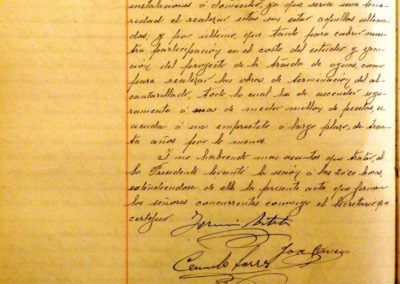 instalaciones á domicilio, ya que sería una
el realizar estas sin estar aquellas
das, y por último, que tanto para cubrir nues
tra participación en el coste del estudio y ejecu
ción del proyecto de la traída de aguas, como
para realizar las obras de terminación del al
cantarillado, todo lo cual ha de ascender segu
ramente á mas de medio millon de pesetas, se
acuda á un empréstito á largo plazo, de trein
ta años por lo menos.
Y no habiendo mas asuntos que tratar,
Presidente levantó la sesión á las doce horas,
extendiendose de ella la presente acta que firman
los señores concurrentes conmigo el Secretario que
certifico.
Camilo Torres